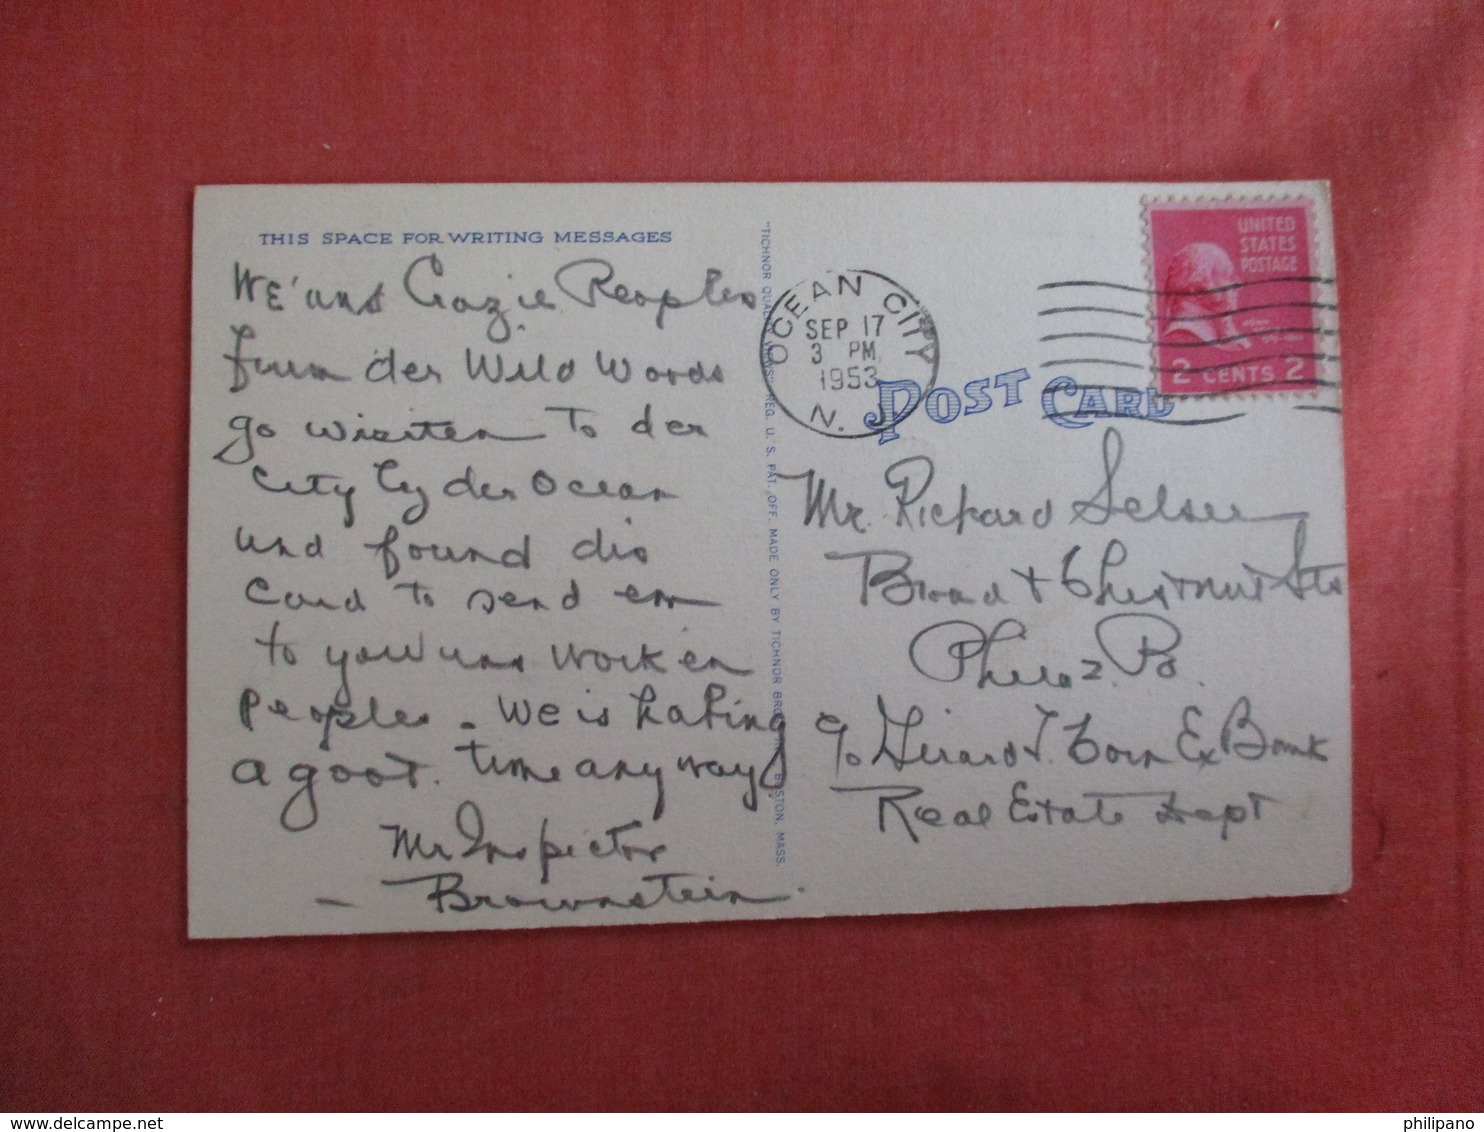 THIS SPACE FOR WRITING MESSAGES
WE'uns Crazie Peoples
frum der Wild Woods
go wisiten To der
City by der Ocean
und found dis
Card to send em
to you'uns Worken
Peoples. We is hafing
a goot. time anyway
Mr Inspector
- Brownstein.
"TICHNOR QUALITY VIEWS" REG. U. S. PAT. OFF. MADE ONLY BY TICHNOR BROS. BOSTON, MASS.
OCEAN CITY
SEP 17
3 PM
1953
N. J.
UNITED
STATES
POSTAGE
2 CENTS 2
POST CARD
Mr. Richard
Broad + Chestnut Sts
Phila 2. Pa.
c/o Girard T. Corn Ex Bank
Real Estate Dept
www.delcampe.net
philipano